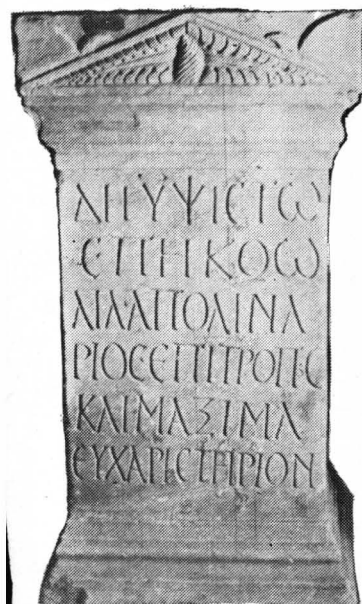 ΔΙΙΥΨΙϹΤΩ
ΕΠΗΚΟΩ
ΑΙΛ·ΑΠΟΛΙΝΑ
ΡΙΟϹΕΠΙΤΡΟΠΟϹ
ΚΑΙΜΑΞΙΜΑ
ΕΥΧΑΡΙϹΤΗΡΙΟΝ